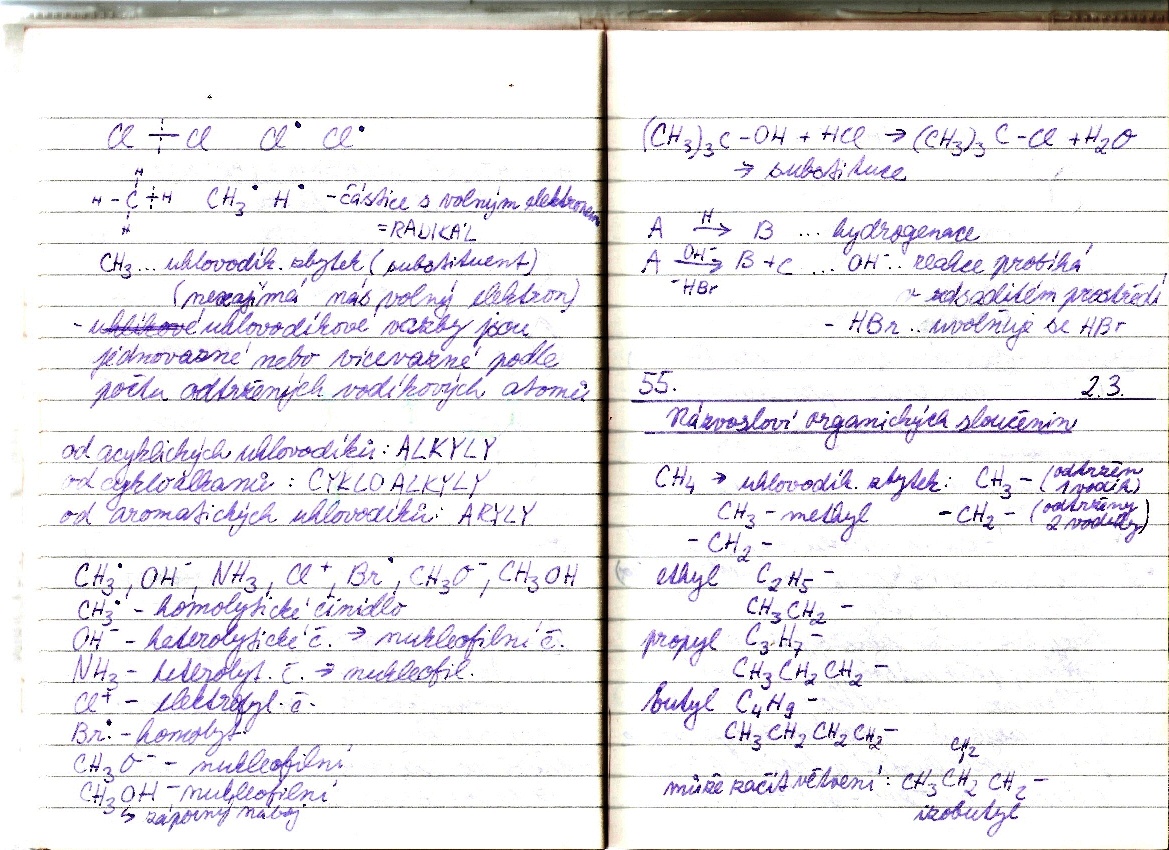 Cl ┼ Cl   Cl•   Cl•
H
H - C ┼ H   CH3•   H•   - částice s volným elektronem
H   = RADIKÁL
CH3 ... uhlovodík. zbytek (substituent)
(nezajímá nás volný elektron)
- uhlovodíkové vazby jsou
jednovazné nebo vícevazné podle
počtu odtržených vodíkových atomů
od acyklických uhlovodíků: ALKYLY
od cykloalkanů: CYKLOALKYLY
od aromatických uhlovodíků: ARYLY
CH3•, OH⁻, NH3, Cl⁺, Br•, CH3O⁻, CH3OH
CH3• - homolytické činidlo
OH⁻ - heterolytické č. → nukleofilní č.
NH3 - heterolyt. č. → nukleofil.
Cl⁺ - elektrofyl. č.
Br• - homolyt.
CH3O⁻ - nukleofilní
CH3OH - nukleofilní
↳ záporný náboj
(CH3)3C - OH + HCl → (CH3)3C - Cl + H2O
→ substituce
A –H→ B ... hydrogenace
A –OH⁻→ B + C ... OH⁻.. reakce probíhá
-HBr   v zásaditém prostředí
- HBr .. uvolňuje se HBr
55.   2.3.
Názvosloví organických sloučenin
CH4 → uhlovodík. zbytek: CH3 - (odtržen 1 vodík)
CH3 - methyl   - CH2 - (odtrženy 2 vodíky)
- CH2 -
ethyl   C2H5 -
CH3CH2 -
propyl   C3H7 -
CH3CH2CH2 -
butyl   C4H9 -
CH3CH2CH2CH2 -
CH2
může začít větvení: CH3CH2CH2 -
izobutyl